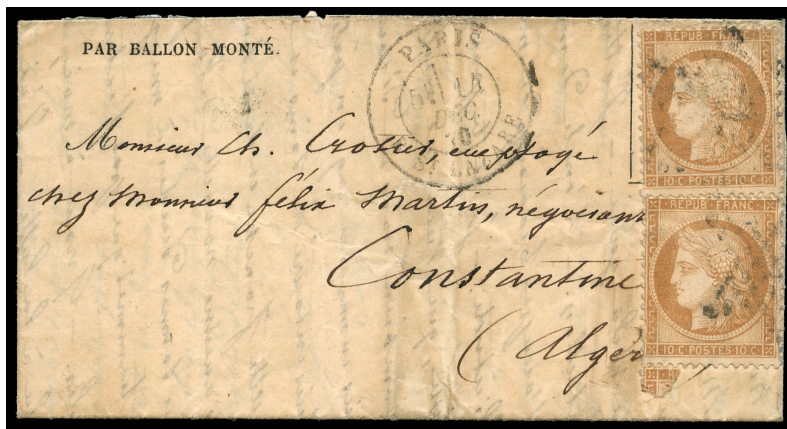 PAR BALLON MONTÉ.
PARIS
5E 14
DEC
70
ST LAZARE
RÉPUB FRANC
10·C·POSTES·10·C
REPUB·FRANC
10·C·POSTES·10·C
Monsieur Ch. employé
chez Monsieur félix Martin, négociant
Constantine
(Algér